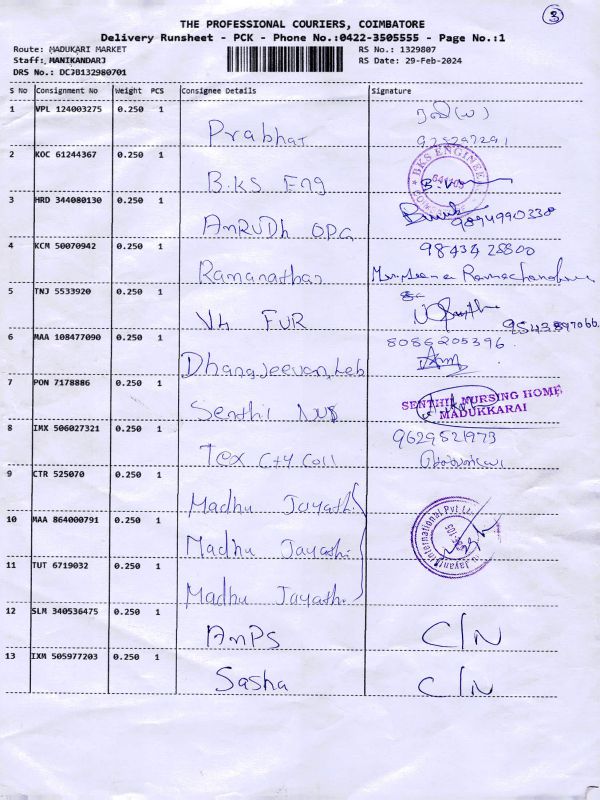 3
THE PROFESSIONAL COURIERS, COIMBATORE
Delivery Runsheet - PCK - Phone No.:0422-3505555 - Page No.:1
Route: MADUKARI MARKET
Staff: MANIKANDARJ
DRS No.: DCJB132980701
RS No.: 1329807
RS Date: 29-Feb-2024
S No Consignment No Weight PCS Consignee Details Signature
1 VPL 124003275 0.250 1
Prabhat
2 KOC 61244367 0.250 1
B.KS Eng
BKS ENGINEE
3 HRD 344080130 0.250 1
AnRUDh OPG
9894990338
4 KCM 50070942 0.250 1
Ramanathan
98434 28800
5 TNJ 5533920 0.250 1
Vh FUR
9543897066
6 MAA 108477090 0.250 1
Dhanajeevan Leb
8086205396
7 PON 7178886 0.250 1
Senthil NUS
SENTHIL NURSING HOME
MADUKKARAI
8 IMX 506027321 0.250 1
Tex C+y Coll
9629521973
9 CTR 525070 0.250 1
Madhu Jayathi
10 MAA 864000791 0.250 1
Madhu Jayathi
Jayanti International Pvt
11 TUT 6719032 0.250 1
Madhu Jayathi
12 SLM 340536475 0.250 1
AmPS C/N
13 IXM 505977203 0.250 1
Sasha C/N